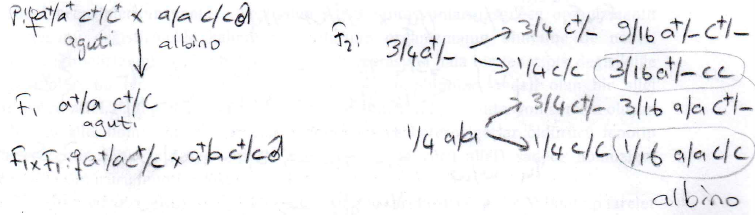 P: ♀ a⁺/a⁺ c⁺/c⁺ x a/a c/c ♂
aguti albino
F₁ a⁺/a c⁺/c
aguti
F₁xF₁: ♀ a⁺/a c⁺/c x a⁺/a c⁺/c ♂
F₂:
3/4 a⁺/-
3/4 c⁺/- 9/16 a⁺/- c⁺/-
1/4 c/c 3/16 a⁺/- cc
1/4 a/a
3/4 c⁺/- 3/16 a/a c⁺/-
1/4 c/c 1/16 a/a c/c
albino